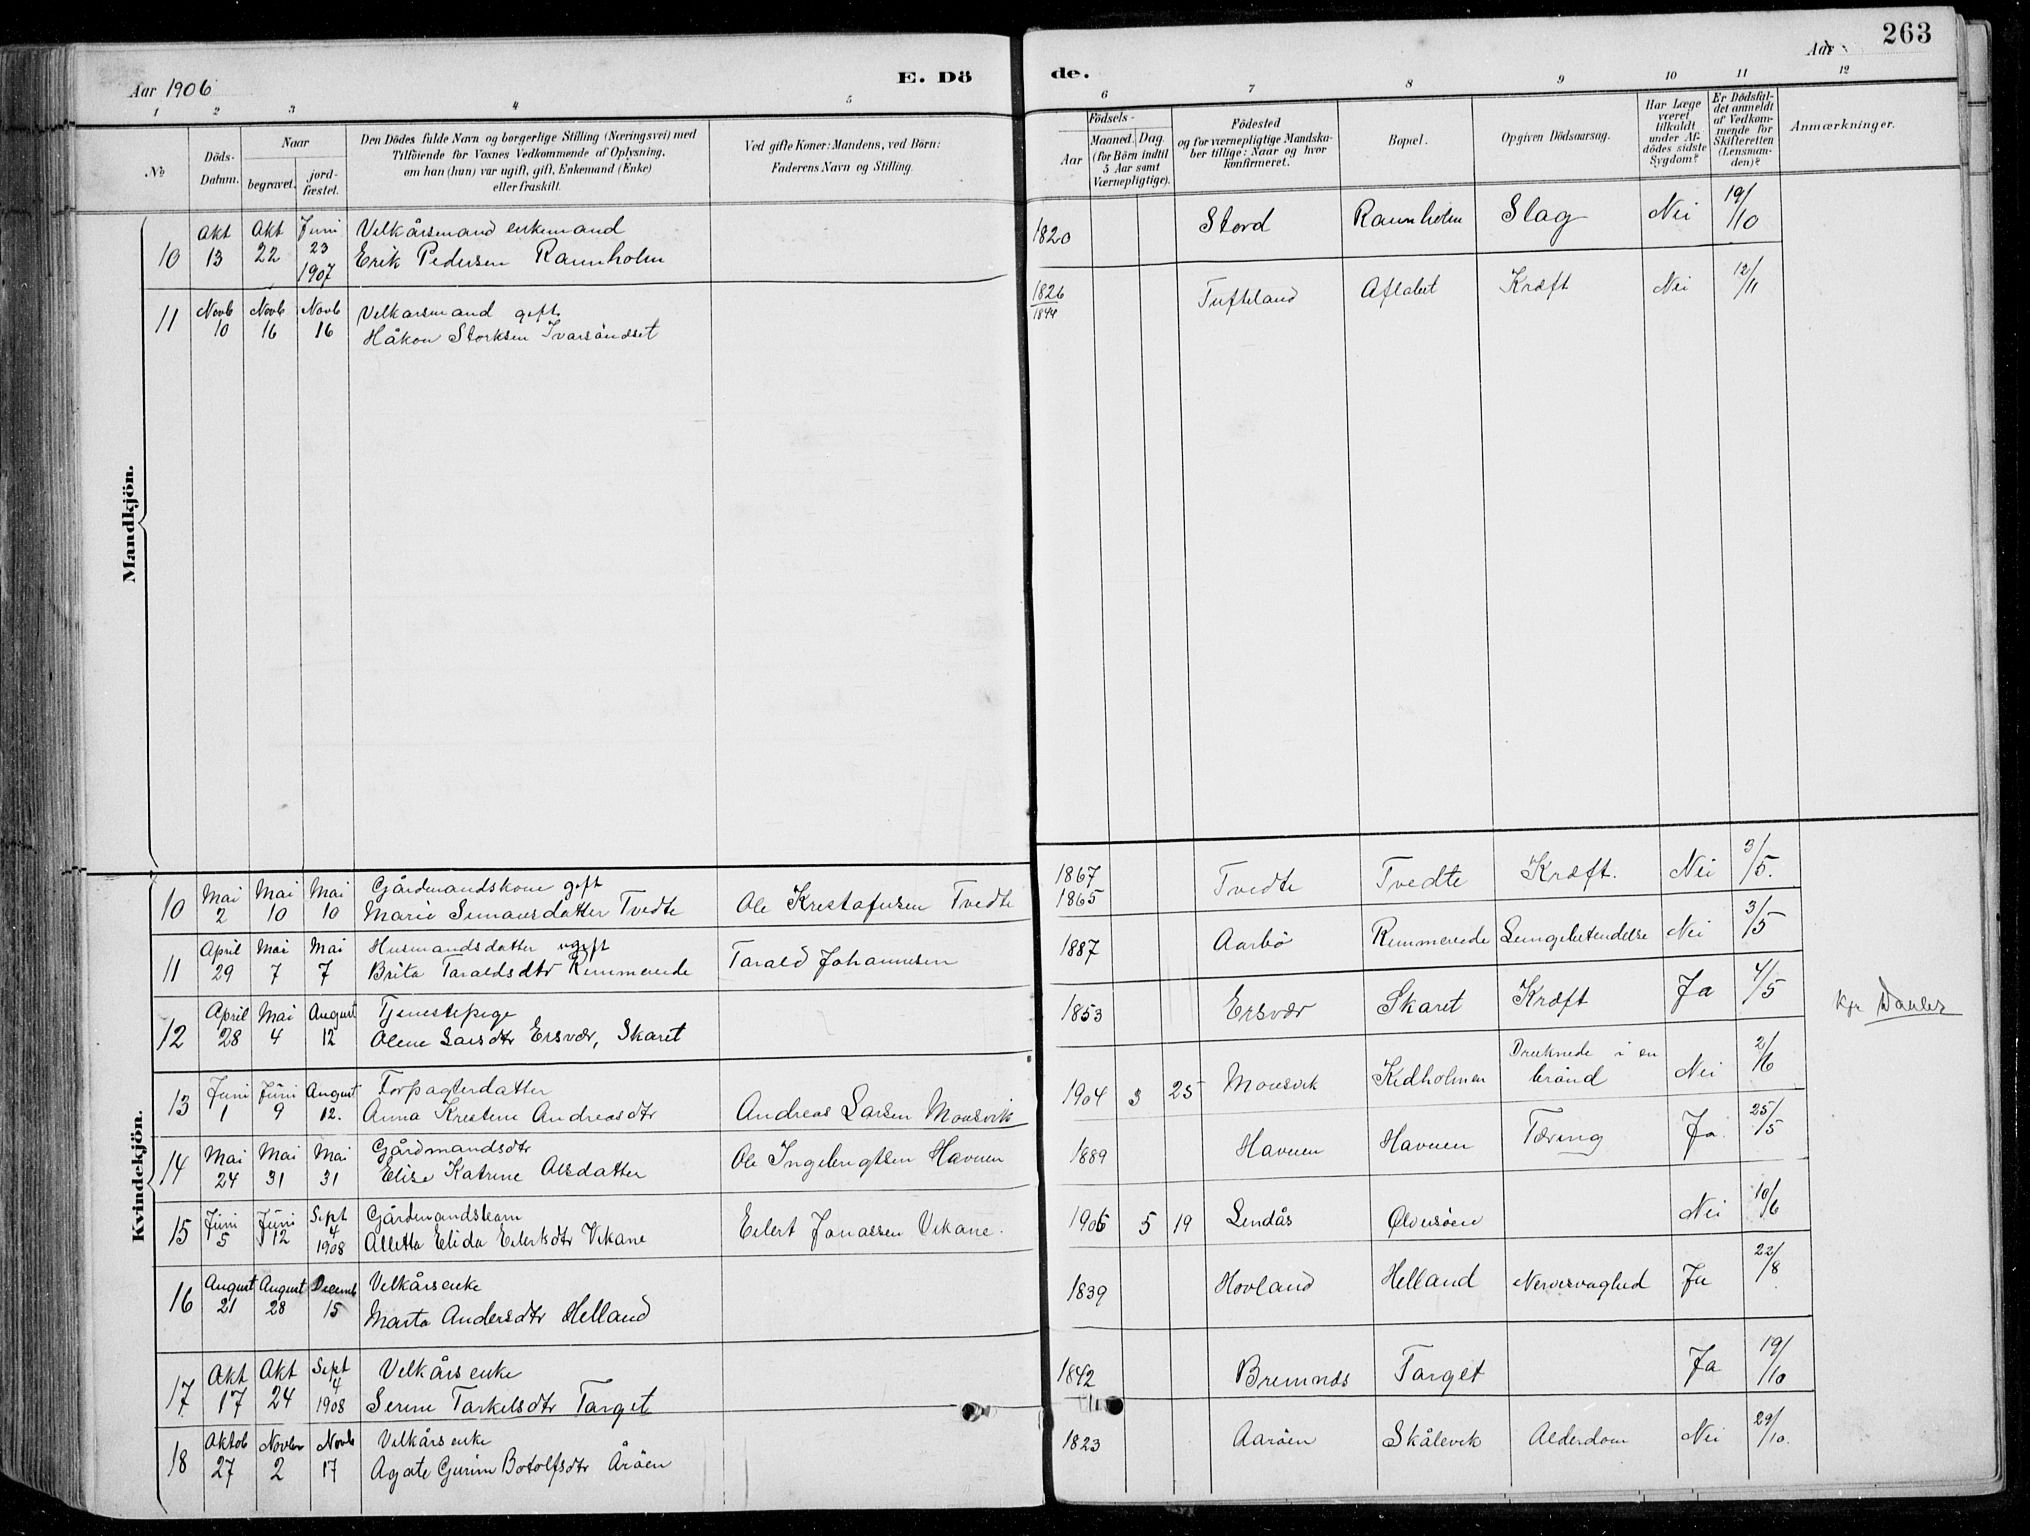 Aar 1906
E. Dö
de.
Aar
263
1 2 3 4 5 6 7 8 9 10 11 12
No
Döds-
Datum.
Naar
begravet.
jord-
fæstet.
Den Dödes fulde Navn og borgerlige Stilling (Næringsvei) med
Tilföiende for Voxnes Vedkommende af Oplysning,
om han (hun) var ugift, gift, Enkemand (Enke)
eller fraskilt.
Ved gifte Koner: Mandens, ved Börn:
Faderens Navn og Stilling.
Födsels-
Aar
Maaned. Dag.
(for Börn indtil
5 Aar samt
Værnepligtige).
Födested
og for værnepligtige Mandska-
ber tillige: Naar og hvor
konfirmeret.
Bopæl.
Opgiven Dödsaarsag.
Har Læge
været
tilkaldt
under Af-
dödes sidste
Sygdom?
Er Dödsfal-
det anmeldt
af Vedkom-
mende for
Skifteretten
(Lensman-
den)?
Anmærkninger.
Mandkjön.
10 Okt 13 Okt 22 Juni 23 1907 Velkårsmand enkemand
Erik Pedersen Rannholm
1820 Stord Rannholm Slag Nei 19/10
11 Novb 10 Novb 16 Novb 16 Velkårsmand gift
Håkon Storksen Ivarsöndset
1826 1844 Tufteland Aflabet Kræft Nei 12/11
Kvindekjön.
10 Mai 2 Mai 10 Mai 10 Gårdmandskone gift
Marie Simonsdatter Tvedte Ole Kristofersen Tvedte
1867 1865 Tvedte Tvedte Kræft. Nei 3/5.
11 April 29 Mai 7 Mai 7 Husmandsdatter ugift
Brita Taraldsdtr Rimmereide Tarald Johannesen
1887 Aarbö Rimmereide Lungebetendelse Nei 3/5
12 April 28 Mai 4 August 12 Tjenestepige
Olene Larsdtr Ersvær, Skaret
1853 Ersvær Skaret Kræft Ja 4/5
13 Juni 1 Juni 9 August 12. Forpagterdatter
Anna Krestine Andreasdtr Andreas Larsen Monsvik
1904 3 25 Monsvik Kidholmen Druknede i en brönd Nei 2/6
14 Mai 24 Mai 31 Mai 31 Gårdmandsdtr
Elise Katrine Olsdatter Ole Ingebrigtsen Havnen
1889 Havnen Havnen Tæring Ja 25/5
15 Juni 5 Juni 12 Sept 4 1908 Gårdmandsbarn
Alletta Elida Eilertsdtr Vikane Eilert Jonassen Vikane.
1906 5 19 Lindås Ølversöen Nei 10/6
16 August 21 August 28 Decemb 15 Velkårsenke
Marta Andersdtr Helland
1839 Hovland Helland Nervesvaghed Ja 22/8
17 Okt 17 Okt 24 Sept 4 1908 Velkårsenke
Serine Tarkelsdtr Target
1842 Bremnæs Target Ja 19/10
18 Oktob 27 Novbr 2 Novb 17 Velkårsenke
Agate Gurine Botolfsdtr Åröen
1823 Aaröen Skålevik Alderdom Nei 29/10.